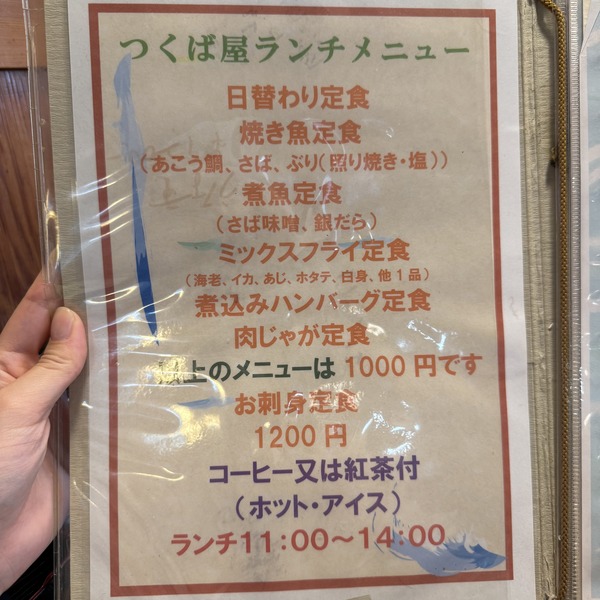 つくば屋ランチメニュー
日替わり定食
焼き魚定食
（あこう鯛、さば、ぶり（照り焼き・塩））
煮魚定食
（さば味噌、銀だら）
ミックスフライ定食
（海老、イカ、あじ、ホタテ、白身、他１品）
煮込みハンバーグ定食
肉じゃが定食
上のメニューは 1000 円です
お刺身定食
1200 円
コーヒー又は紅茶付
（ホット・アイス）
ランチ１１：００～１４：００